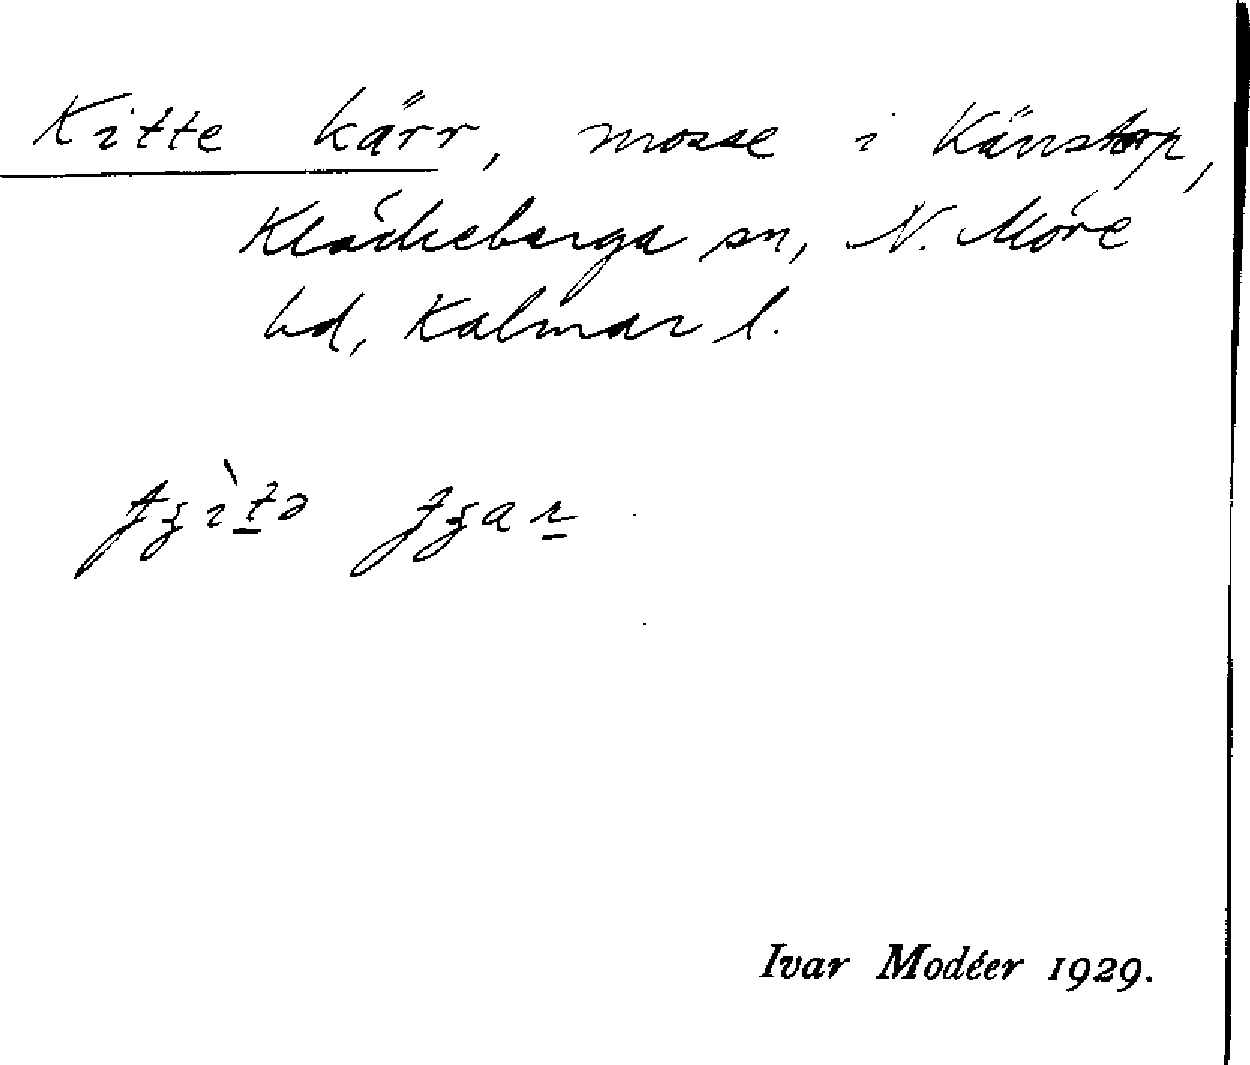 Kitte kärr, mosse i Känstorp,
Kläckeberga sn, N. Möre
hd, Kalmar l.
Ivar Modéer 1929.